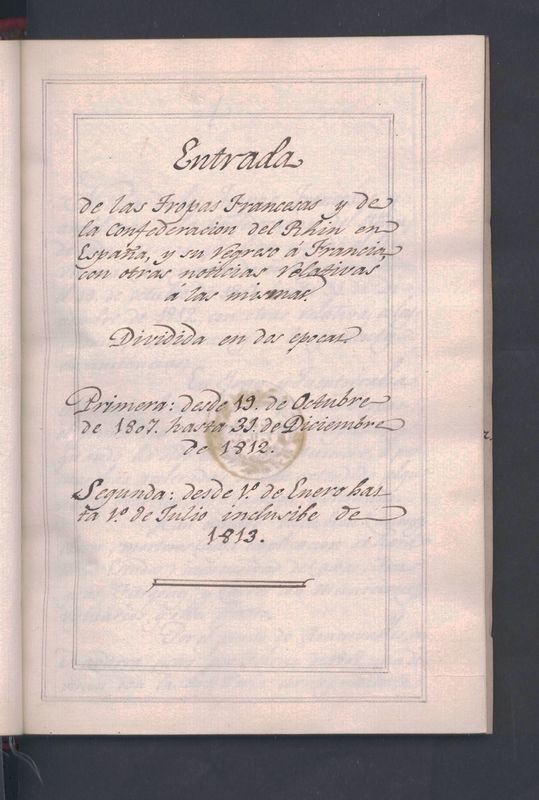 Entrada
de las Tropas Francesas y de
la Confederacion del Rhin en
España, y su regreso á Francia,
con otras noticias relativas
á las mismas.
Dividida en dos epocas
Primera: desde 19. de Octubre
de 1807. hasta 31. de Diciembre
de 1812.
Segunda: desde 1º. de Enero has
ta 1º. de Julio inclusibe de
1813.